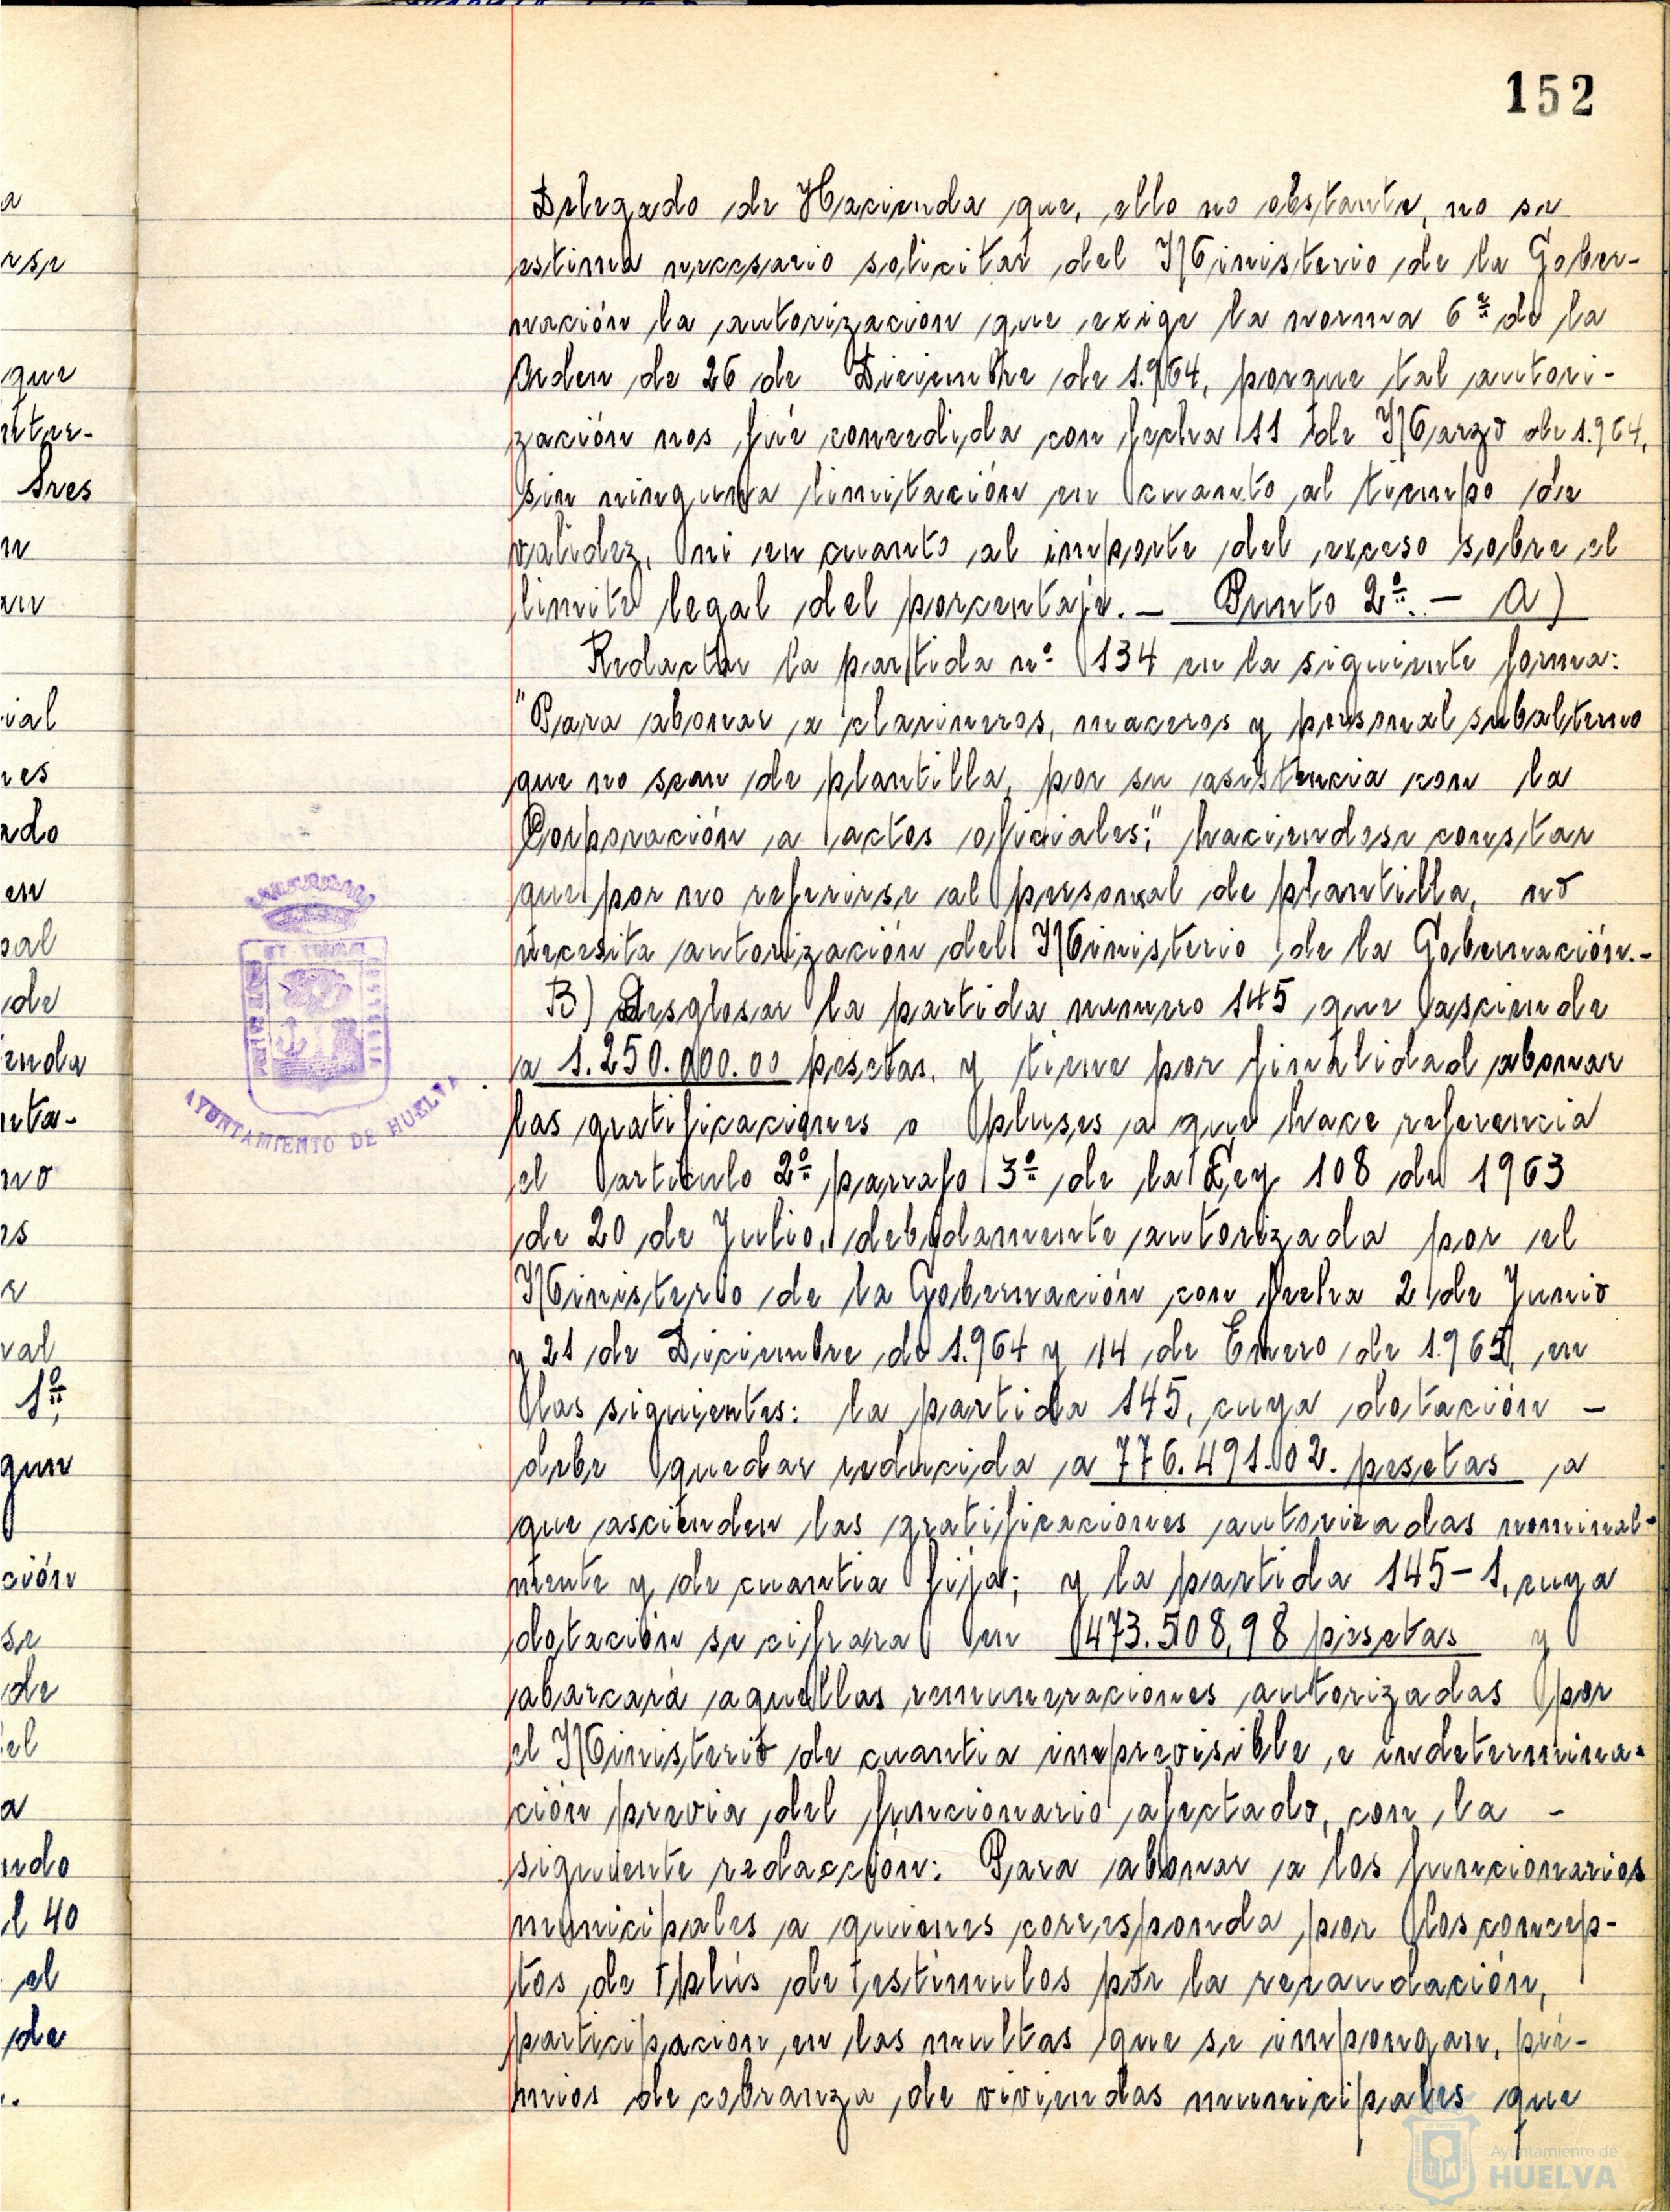 152
Delegado de Hacienda que, ello no obstante, no se
estima necesario solicitar del Ministerio de la Gober-
nación la autorización que exige la norma 6ª de la
Orden de 26 de Diciembre de 1.964, porque tal autori-
zación nos fué concedida con fecha 11 de Marzo de 1.964,
sin ninguna limitación en cuanto al tiempo de
validez, ni en cuanto al importe del exceso sobre el
limite legal del porcentaje. — Punto 2º. — A)
Redactar la partida nº 134 en la siguiente forma:
"Para abonar a clarineros, maceros y personal subalterno
que no sean de plantilla, por su asistencia con la
Corporación a actos oficiales;" haciendose constar
que por no referirse al personal de plantilla, no
necesita autorización del Ministerio de la Gobernación.-
B) Desglosar la partida numero 145 que asciende
a 1.250.000.00 pesetas, y tiene por finalidad abonar
las gratificaciones o pluses a que hace referencia
el articulo 2º parrafo 3º de la Ley 108 de 1963
de 20 de Julio, debidamente autorizada por el
Ministerio de la Gobernación con fecha 2 de Junio
y 21 de Diciembre de 1.964 y 14 de Enero de 1.965, en
las siguientes: la partida 145, cuya dotación -
debe quedar reducida a 776.491.02. pesetas a
que ascienden las gratificaciones autorizadas nominal-
mente y de cuantia fija; y la partida 145-1, cuya
dotación se cifrara en 473.508,98 pesetas y
abarcará aquellas remuneraciones autorizadas por
el Ministerio de cuantia imprevisible e indetermina-
ción previa del funcionario afectado, con la -
siguiente redacción: Para abonar a los funcionarios
municipales a quienes corresponda por los concep-
tos de plús de estimulos por la recaudación,
participacion en las multas que se impongan, pré-
mios de cobranza de viviendas municipales que
AYUNTAMIENTO DE HUELVA
a
que
Sres
ial
res
ado
en
sal
de
enda
nta-
no
val
1º,
que
ción
se
de
el
a
ndo
l 40
el
de
Ayuntamiento de
HUELVA